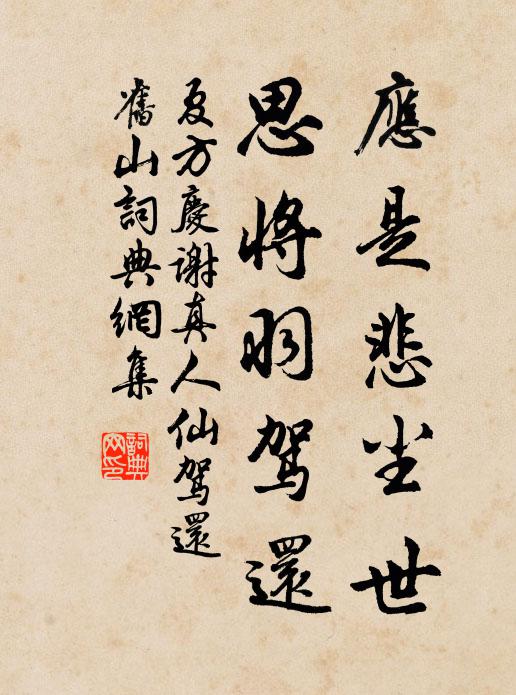 應是悲尘世
思將羽駕還
夏方慶謝真人仙駕還
舊山詞典網集
詞典
网印